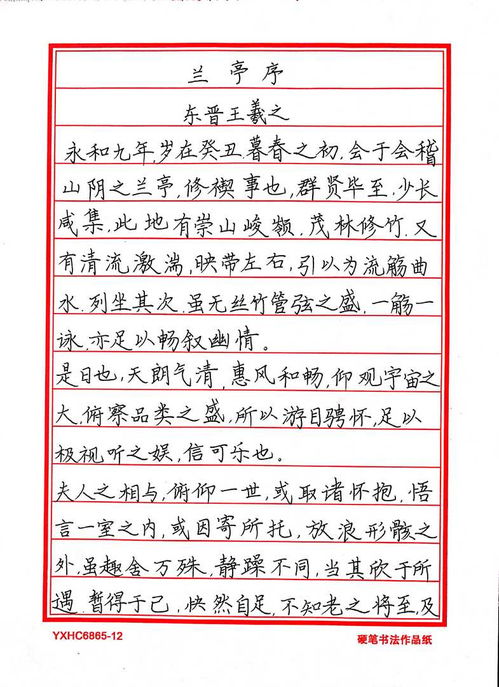 兰亭序
东晋王羲之
永和九年,岁在癸丑,暮春之初,会于会稽
山阴之兰亭,修禊事也,群贤毕至,少长
咸集,此地有崇山峻岭,茂林修竹,又
有清流激湍,映带左右,引以为流觞曲
水,列坐其次,虽无丝竹管弦之盛,一觞一
咏,亦足以畅叙幽情。
是日也,天朗气清,惠风和畅,仰观宇宙之
大,俯察品类之盛,所以游目骋怀,足以
极视听之娱,信可乐也。
夫人之相与,俯仰一世,或取诸怀抱,悟
言一室之内,或因寄所托,放浪形骸之
外,虽趣舍万殊,静躁不同,当其欣于所
遇,暂得于己,快然自足,不知老之将至,及
YXHC6865-12
硬笔书法作品纸